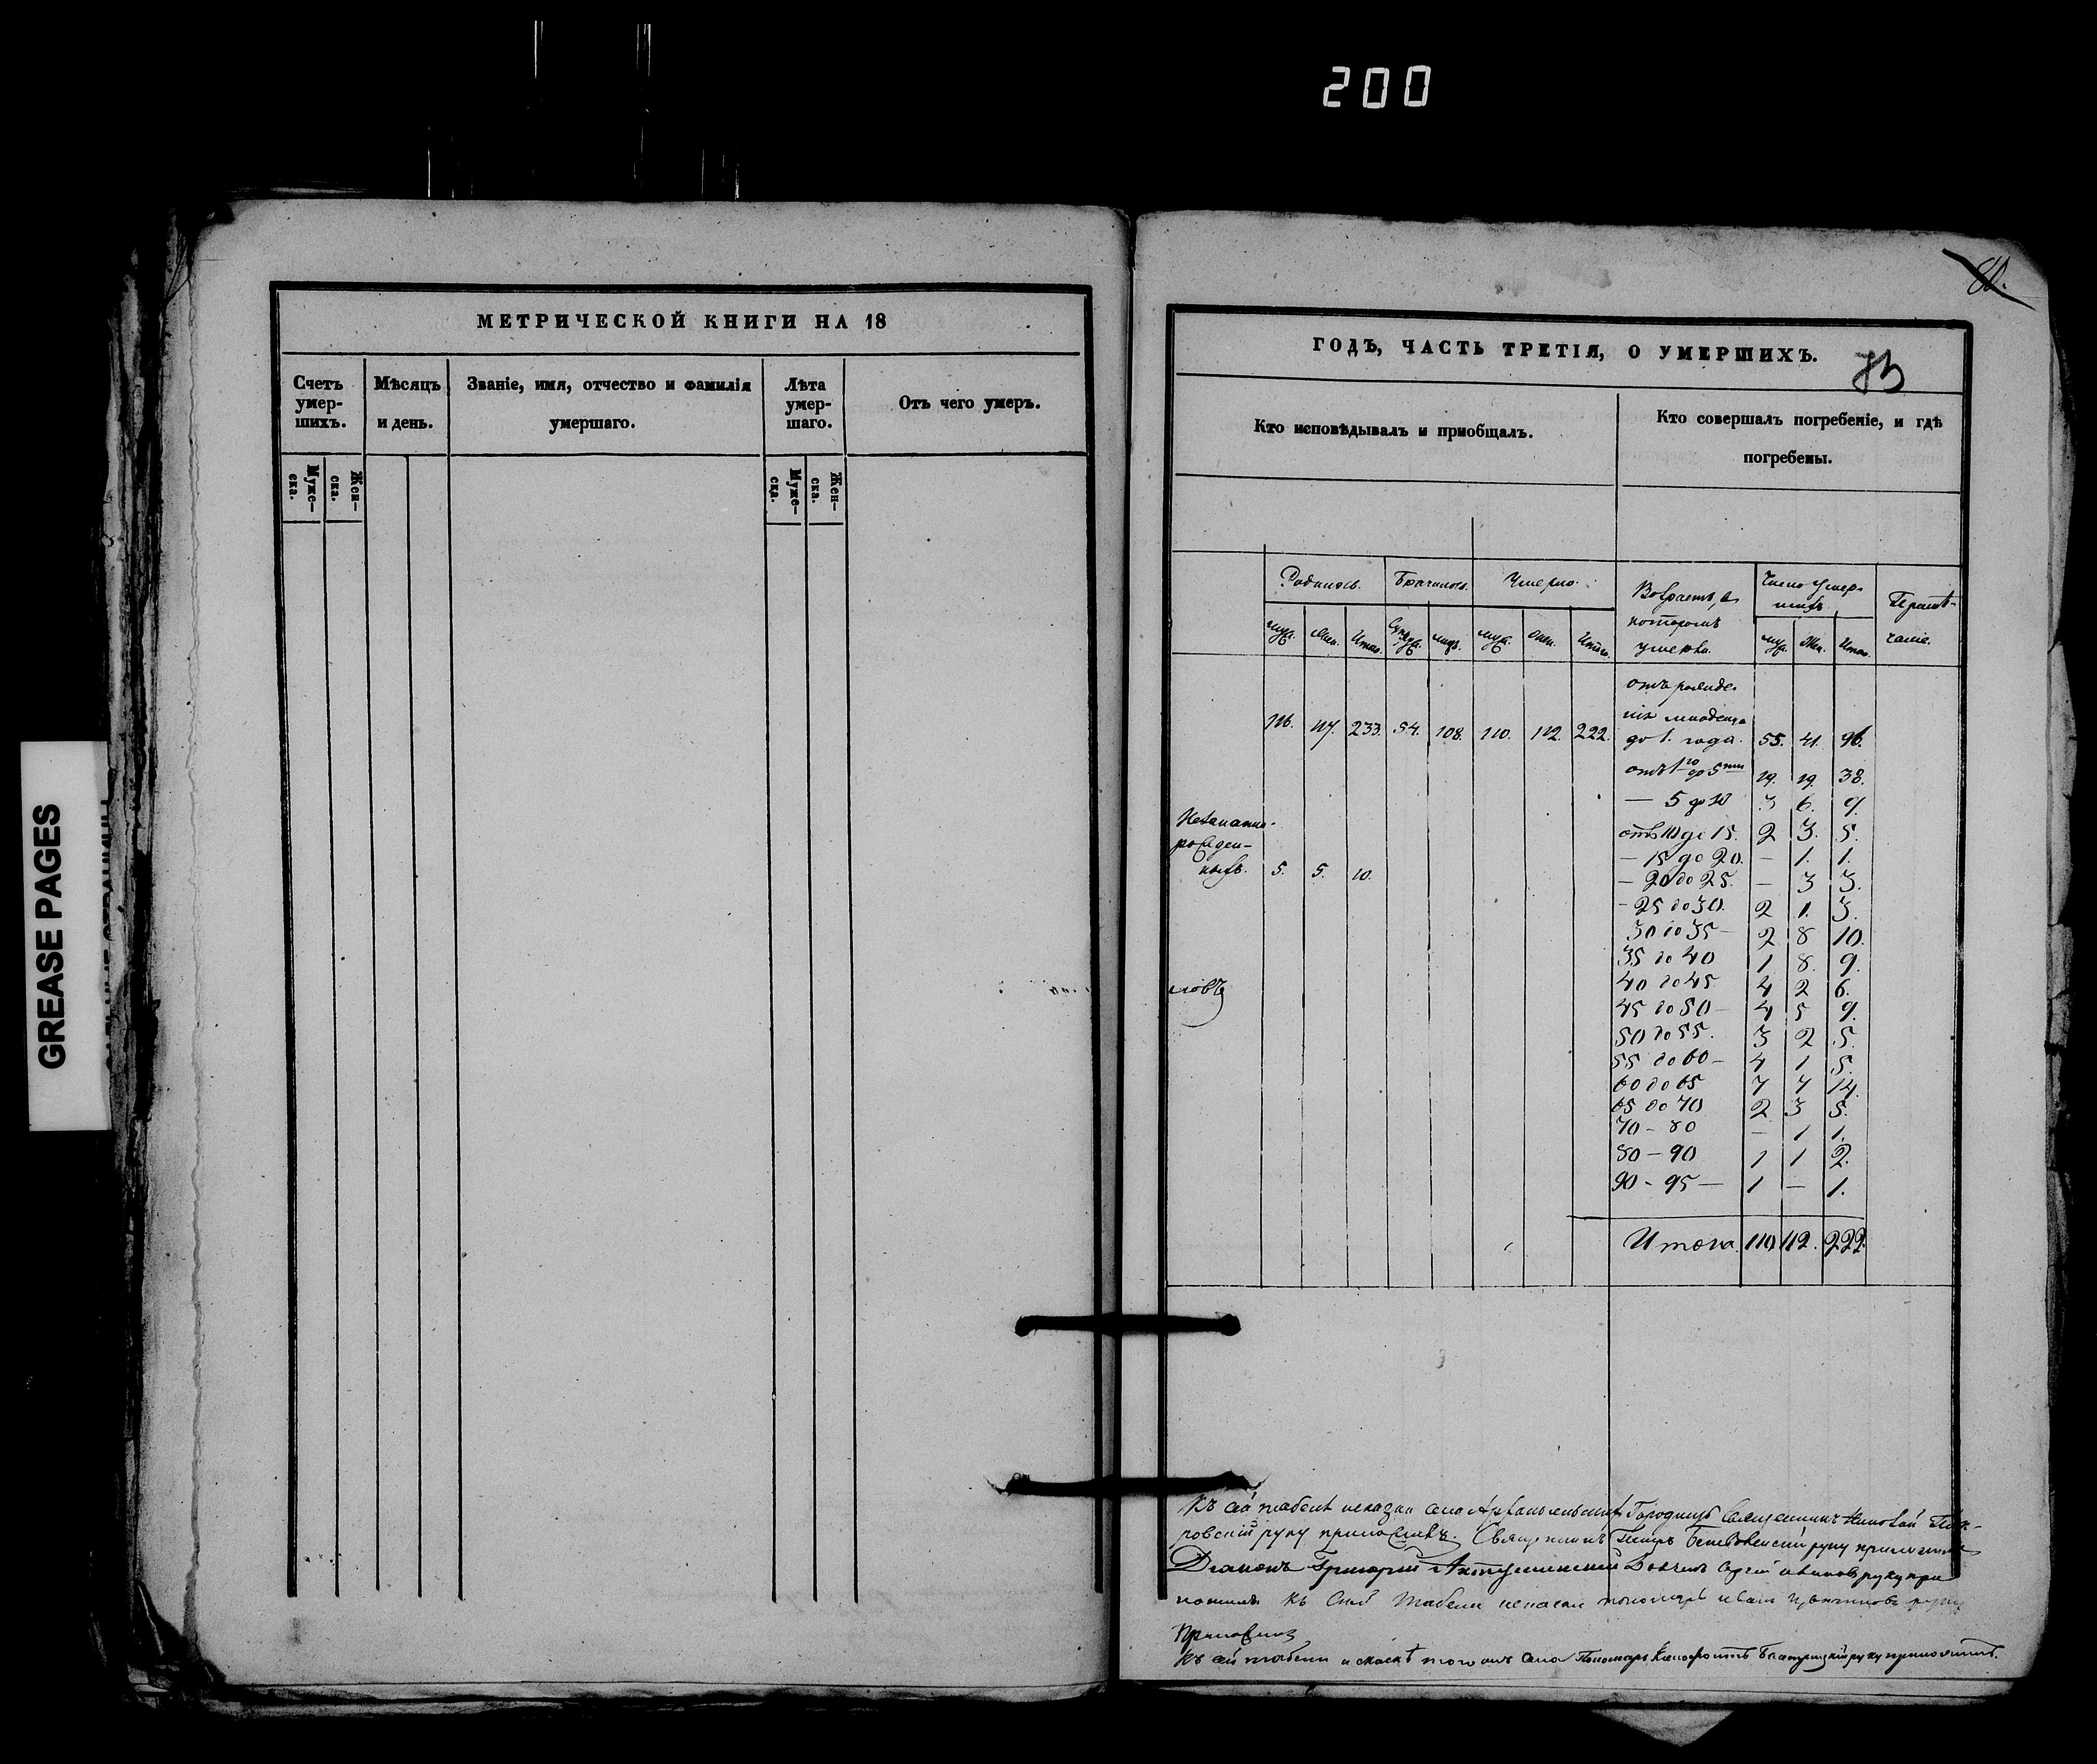 200
GREASE PAGES
МЕТРИЧЕСКОЙ КНИГИ НА 18
Счетъ умер-
шихъ.
Мѣсяцъ
и день.
Званіе, имя, отчество и фамилія
умершаго.
Лѣта
умер-
шаго.
Отъ чего умеръ.
Муже-
ска.
Жен-
ска.
Муже-
ска.
Жен-
ска.
80.
ГОДЪ, ЧАСТЬ ТРЕТІЯ, О УМЕРШИХЪ.
83
Кто исповѣдывалъ и пріобщалъ.
Кто совершалъ погребеніе, и гдѣ
погребены.
Родилось. Браковъ. Умерло.
Возрастъ, въ
которомъ
умерли.
Число умер-
шихъ
Примѣ-
чаніе.
муж. жен. Итого. муж. жен. Итого.
муж. Жен. Итого.
отъ рожде-
нія младенца
116. 117. 233. 54. 108. 110. 112. 222. до 1. года. 55. 41. 96.
отъ 1го до 5ти 19. 19. 38.
— 5 до 10 3 6. 9.
Незаконно-
рожден-
ныхъ. 5. 5. 10.
отъ 10 до 15. 2 3. 5.
— 15 до 20. — 1. 1.
— 20 до 25. — 3 3.
- 25 до 30. 2 1. 3.
30 до 35 - 2 8 10.
35 до 40 1 8. 9.
40 до 45 4 2 6.
45 до 50 - 4 5 9.
50 до 55. 3 2 5.
55 до 60 - 4 1 5.
60 до 65 7 7 14.
65 до 70 2 3 5.
70 - 80 — 1 1.
80 - 90 1 1 2.
90 - 95 — 1 — 1.
Итого. 110. 112. 222.
Къ сей табели села Городищъ Священникъ Николай Пок-
ровскій руку приложилъ. Священникъ Петръ руку приложилъ
Діаконъ Григорій Дьячекъ Сергій руку при
ложилъ Къ сей табели пономарь Иванъ руку
Приложилъ
Къ сей табели и того жъ села Пономарь руку приложилъ.